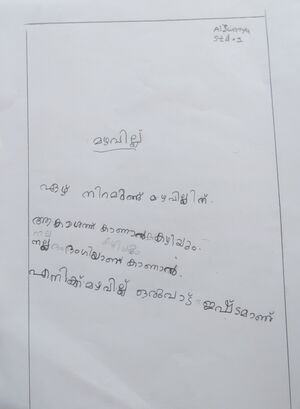 Aiswarya
Std-1
മഴവില്ല്
ഏഴ് നിറമുണ്ട് മഴവില്ലിന്.
ആകാശത്ത് കാണാൻ കഴിയും.
നല്ല ഭംഗിയാണ് കാണാൻ.
എനിക്ക് മഴവില്ല് ഒരുപാട് ഇഷ്ടമാണ്